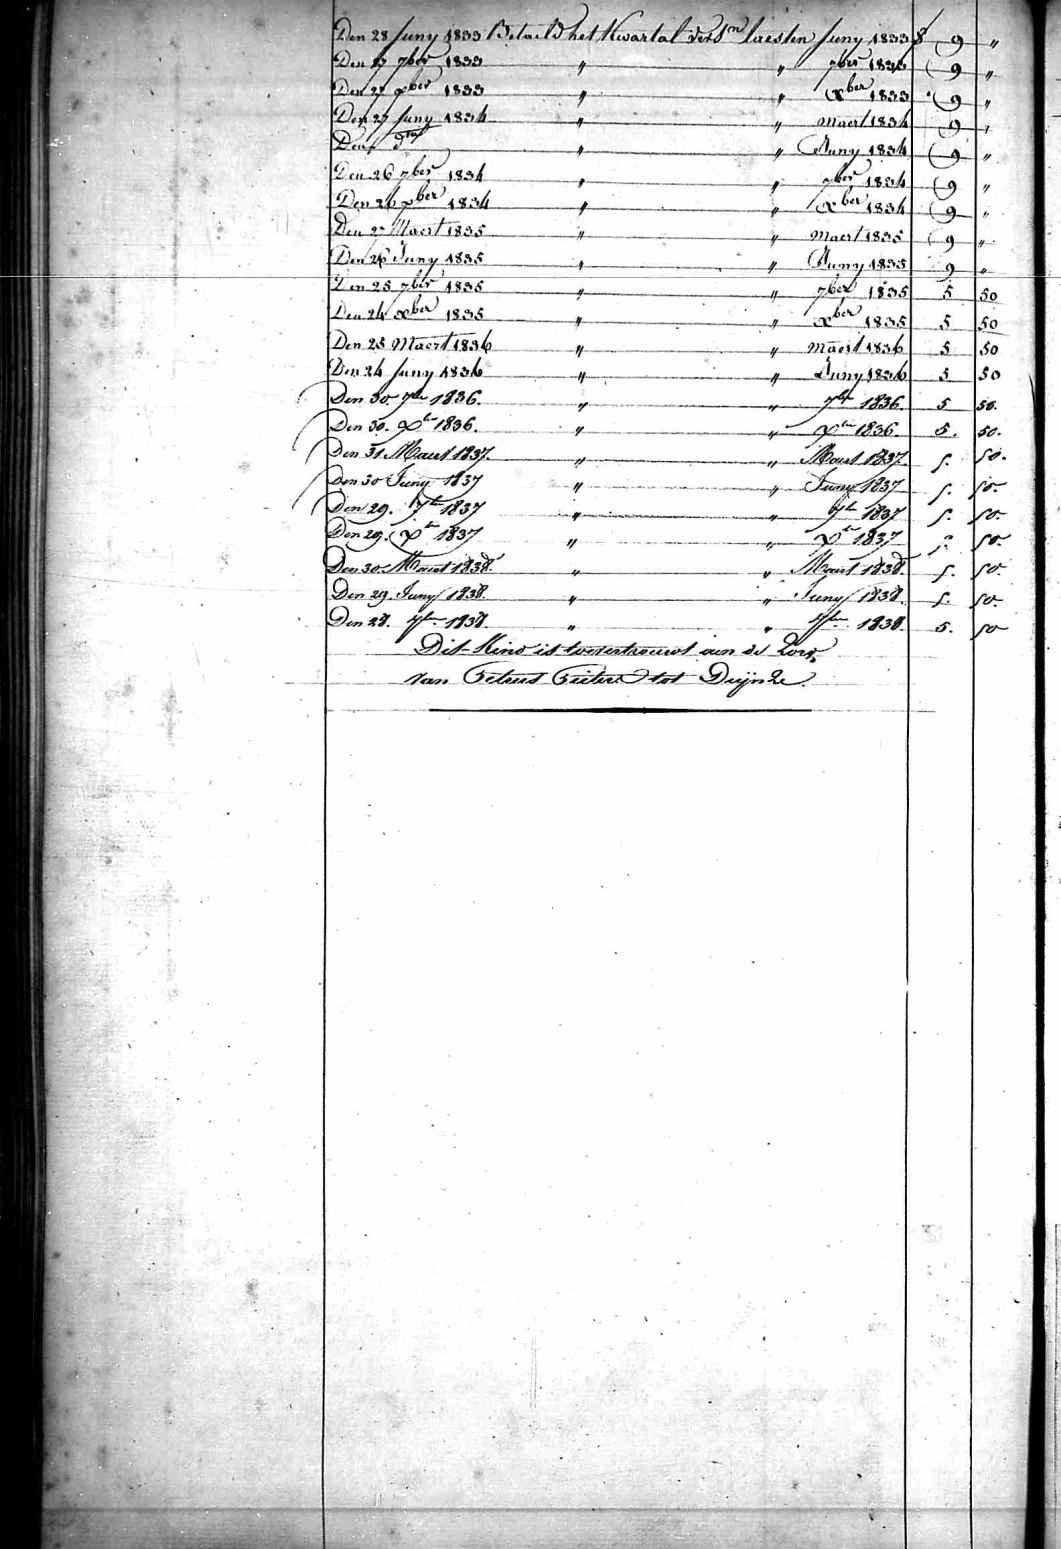 Den 28 Juny 1833 Betaeld het Kwartal versn laesten Juny 1833 f 9 "
Den 27 7ber 1833 " " 7ber 1833 9 "
Den 27 xber 1833 " " xber 1833 9 "
Den 27 Juny 1834 " " Maert 1834 9 "
Den " " Juny 1834 9 "
Den 26 7ber 1834 " " 7ber 1834 9 "
Den 26 xber 1834 " " xber 1834 9 "
Den 27 Maert 1835 " " Maert 1835 9 "
Den 26 Juny 1835 " " Juny 1835 9 "
Den 25 7ber 1835 " " 7ber 1835 5 50
Den 24 xber 1835 " " xber 1835 5 50
Den 25 Maert 1836 " " Maert 1836 5 50
Den 24 Juny 1836 " " Juny 1836 5 50
Den 30. 7br 1836. " " 7br 1836. 5 50.
Den 30. Xbr 1836. " " Xbr 1836. 5. 50.
Den 31 Maert 1837. " " Maert 1837. 5. 50.
Den 30 Juny 1837 " " Juny 1837 5. 50.
Den 29. 7br 1837 " " 7br 1837 5. 50.
Den 29. Xbr 1837 " " Xbr 1837 5. 50.
Den 30. Maert 1838. " " Maert 1838. 5. 50.
Den 29. Juny 1838. " " Juny 1838. 5. 50.
Den 28. 7br 1838. " " 7br 1838. 5. 50
Dit Kind is toevertrouwt aen de
van Petrus tot Deijnze.